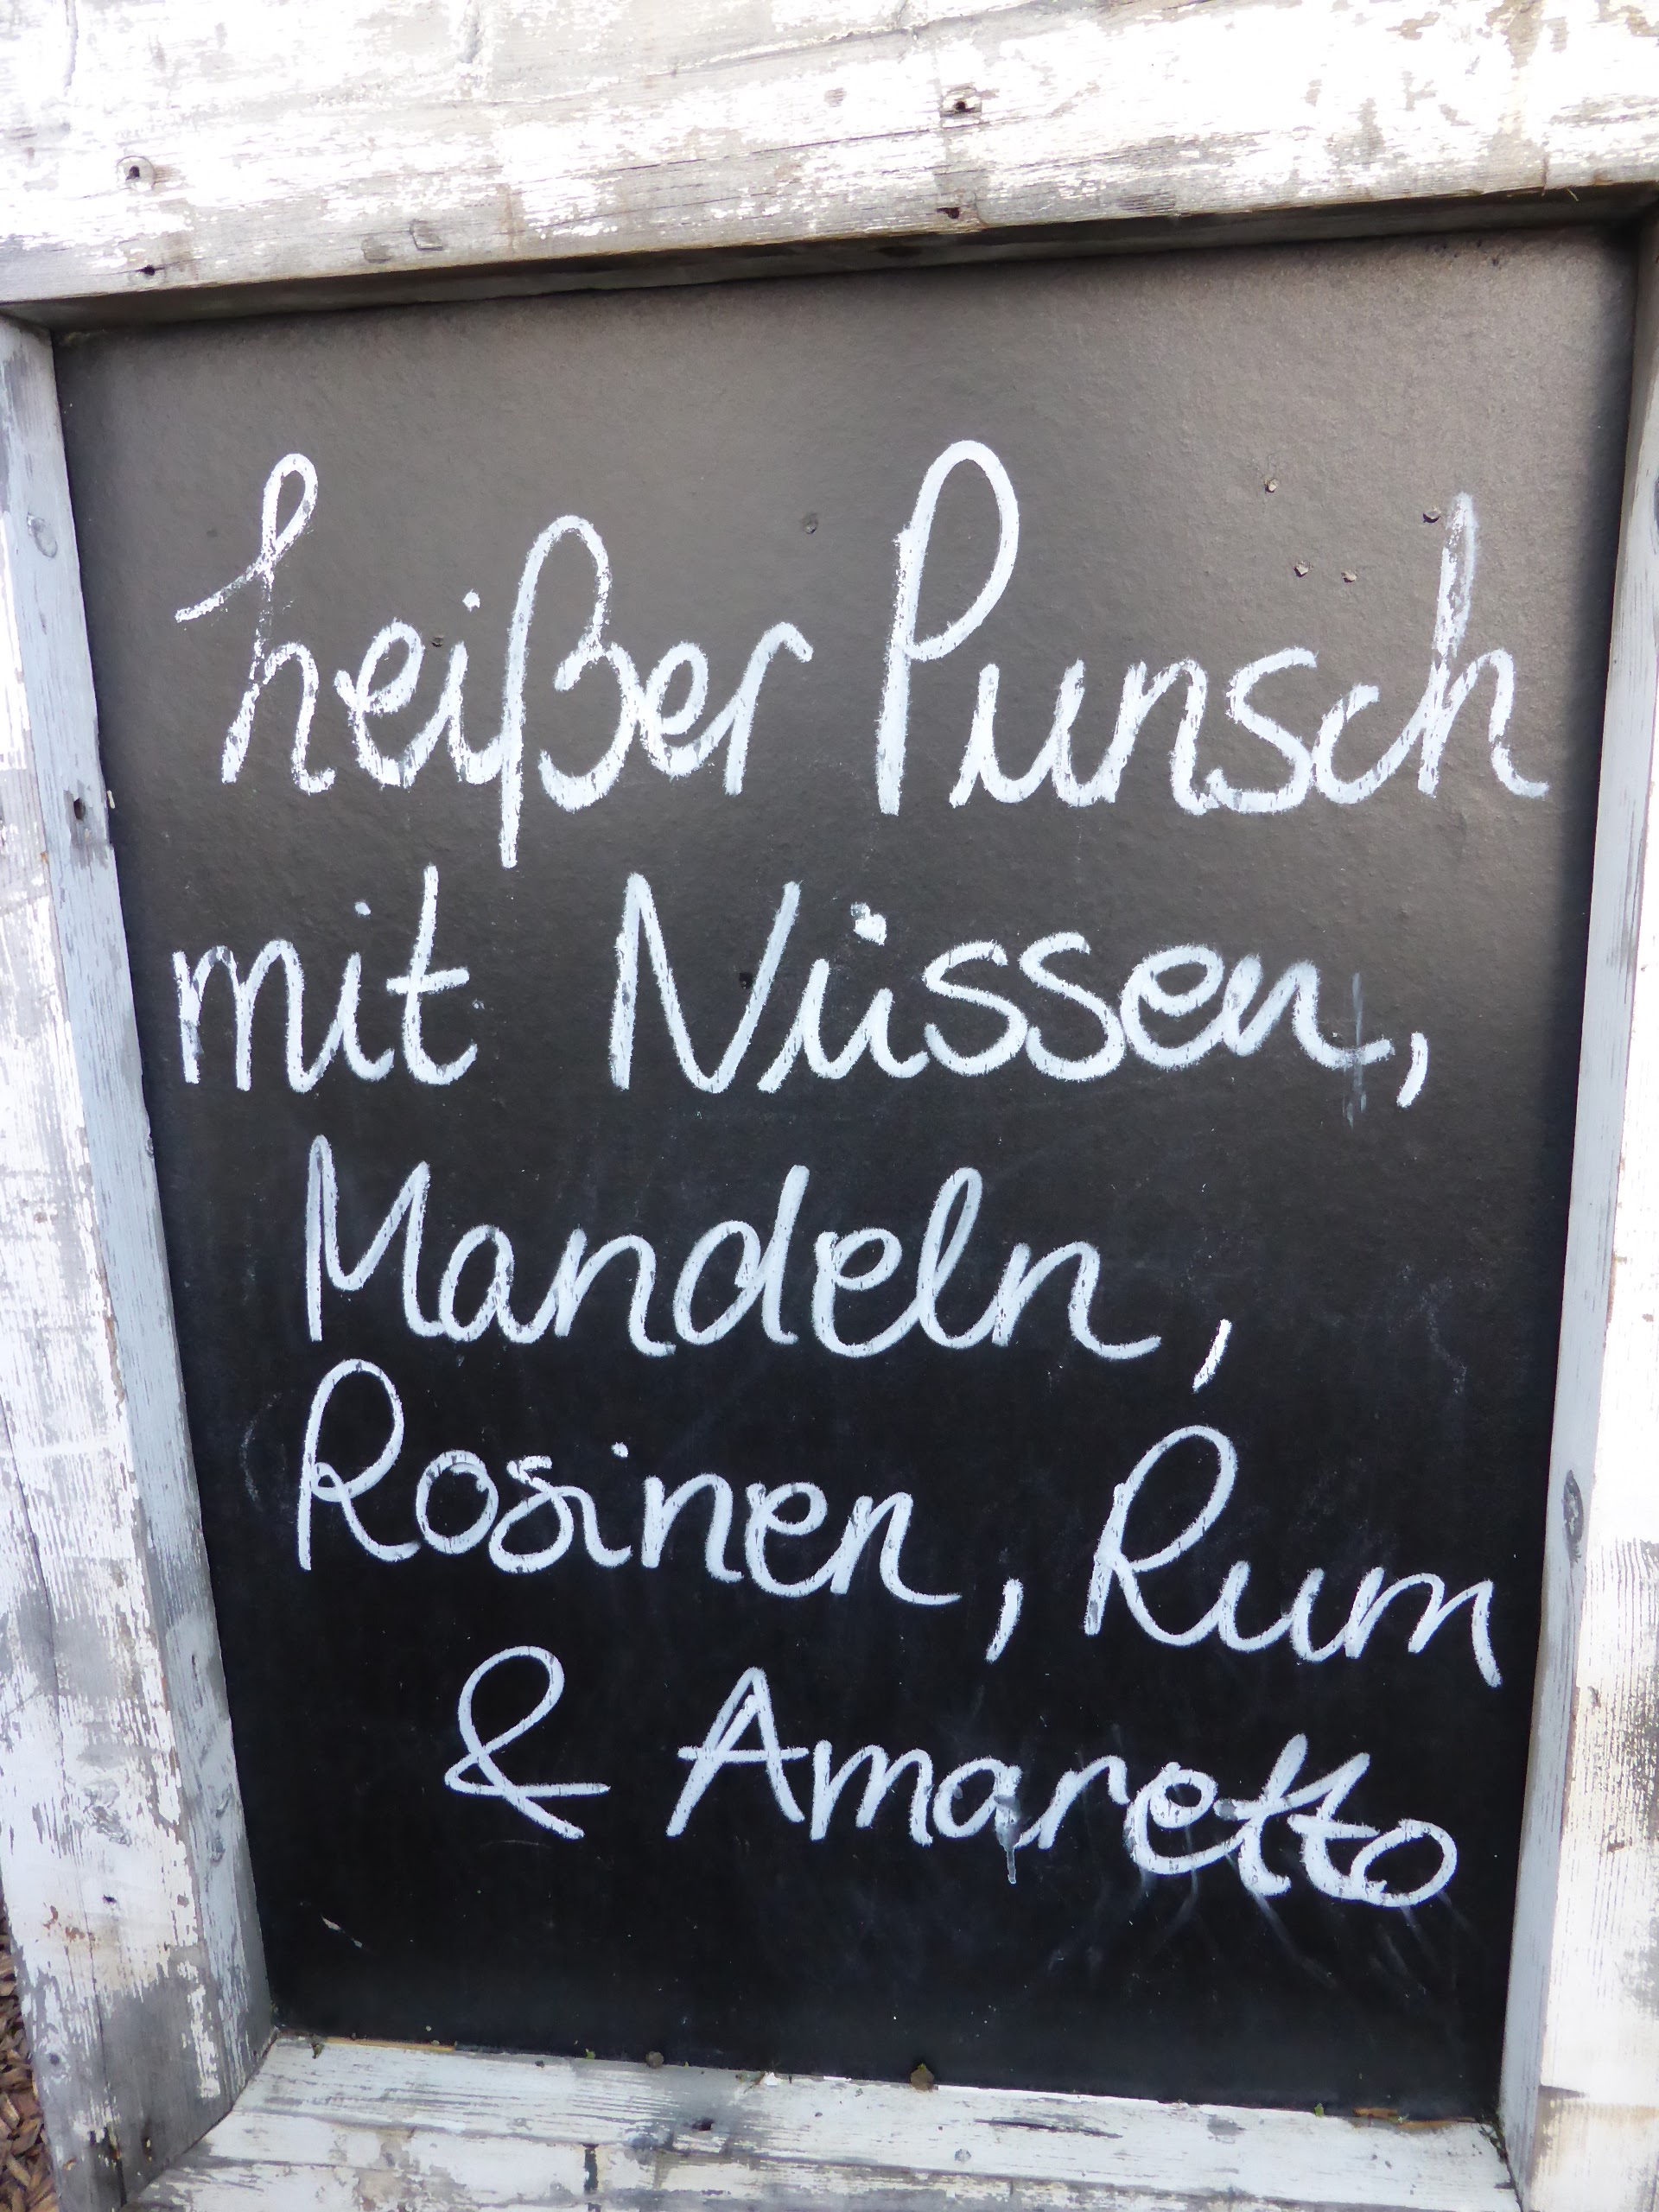 heißer Punsch
mit Nüssen,
Mandeln,
Rosinen, Rum
& Amaretto